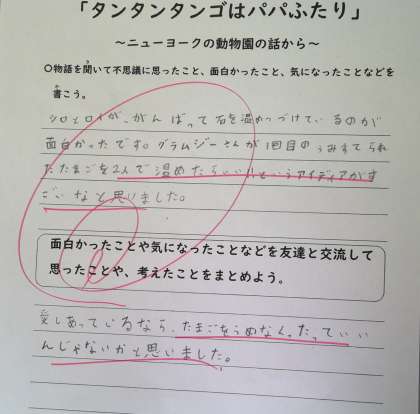 「タンタンタンゴはパパふたり」
~ニューヨークの動物園の話から~
〇物語を聞いて不思議に思ったこと、面白かったこと、気になったことなどを
書こう。
シロとロイが、がんばって石を温めつづけているのが
面白かったです。グラムジーさんが1回目のうみすてられ
たたまごを2人で温めたらいい!!というアイディアがす
ごいなと思いました。
面白かったことや気になったことなどを友達と交流して
思ったことや、考えたことをまとめよう。
愛しあっているなら、たまごをうめなくったっていい
んじゃないかと思いました。